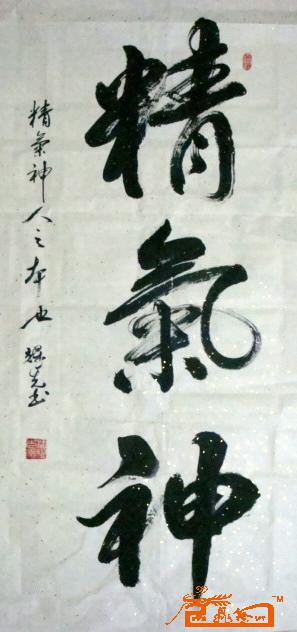 精氣神
精氣神人之本也